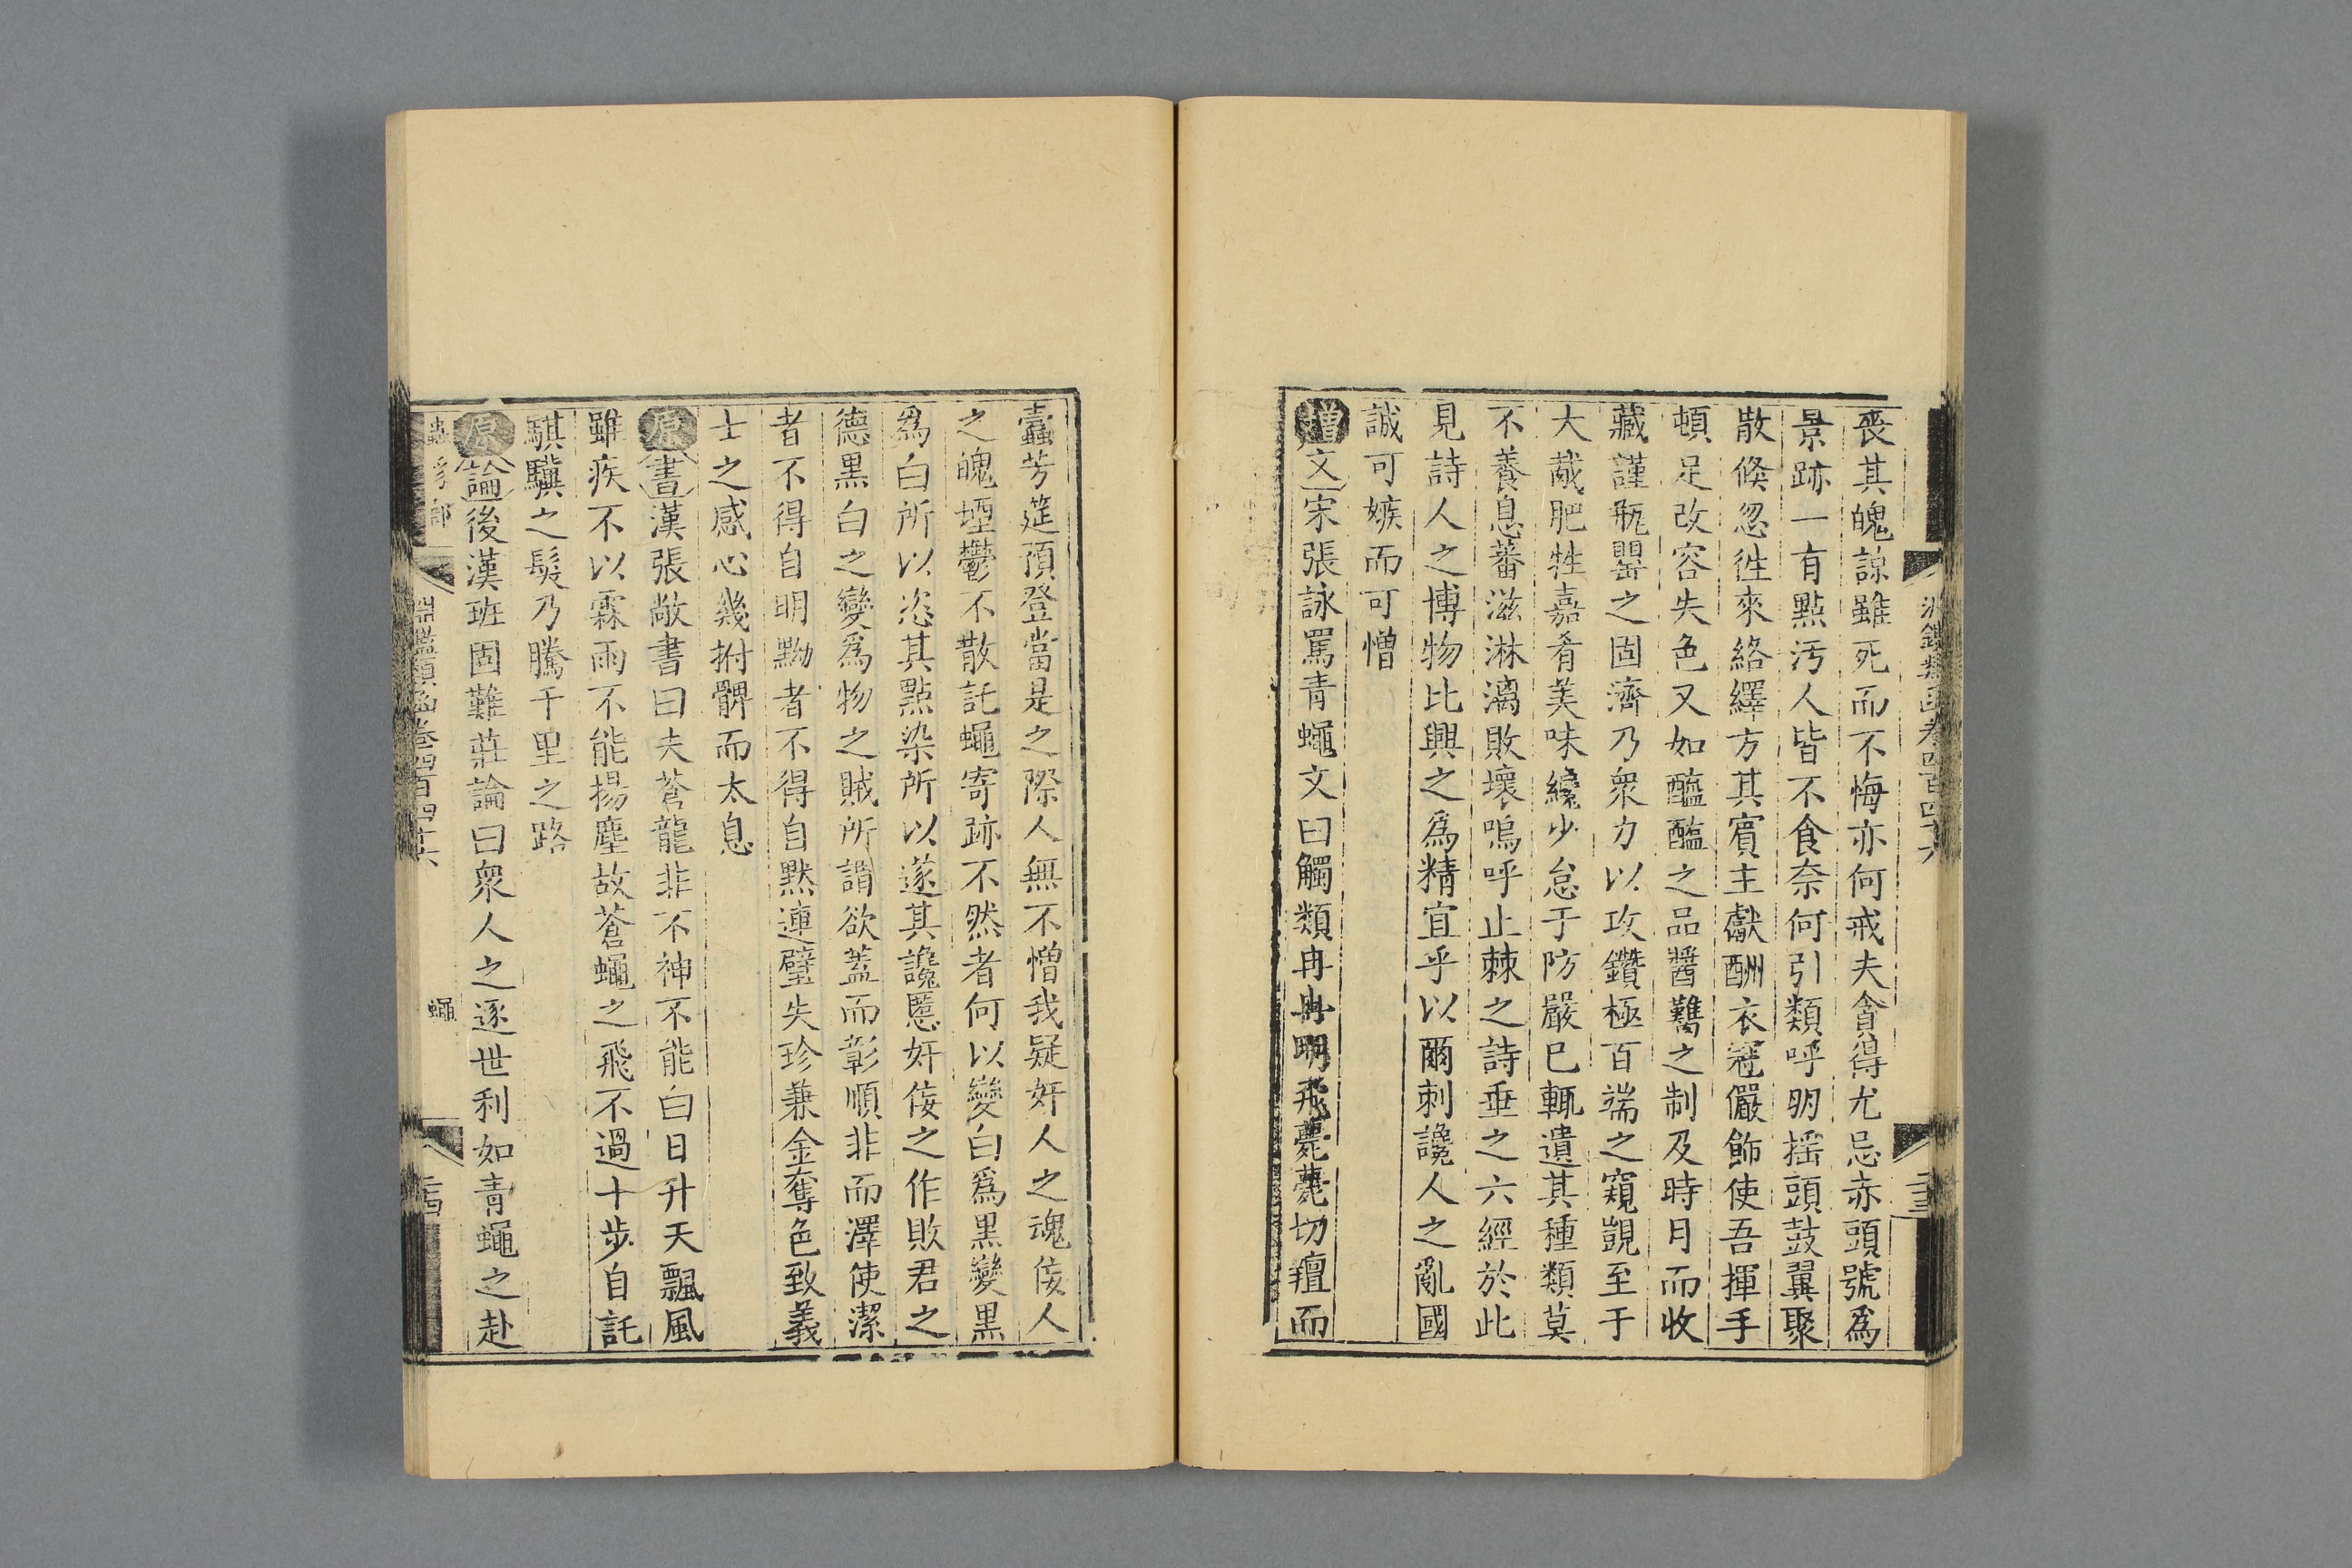 喪其魄諒雖死而不悔亦何戒夫貪得尤忌赤頭號爲
景跡一有點汚人皆不食奈何引類呼朋摇頭鼓翼聚
散倐忽徃來絡繹方其賔主獻酬衣冠儼飾使吾揮手
頓足改容失色又如醯醢之品醬臡之制及時月而收
藏謹瓶罌之固濟乃衆力以攻鑽極百端之窺覬至于
大胾肥牲嘉肴美味纔少怠于防嚴已輒遺其種類莫
不養息蕃滋淋漓敗壞嗚呼止棘之詩垂之六經於此
見詩人之博物比興之爲精宜乎以爾刺讒人之亂國
誠可嫉而可憎
增文宋張詠罵青蠅文曰觸類冉冉朋飛薨薨切羶而
淵鑑類函卷四百四十六
二十三
蠹芳筵預登當是之際人無不憎我疑奸人之魂佞人
之魄堙鬱不散託蠅寄跡不然者何以變白爲黒變黒
爲白所以恣其點染所以遂其讒慝奸佞之作敗君之
德黒白之變爲物之賊所謂欲蓋而彰順非而澤使潔
者不得自明黝者不得自黙連璧失珍兼金奪色致義
士之感心幾拊髀而太息
原書漢張敞書曰夫蒼龍非不神不能白日升天飄風
雖疾不以霖雨不能揚塵故蒼蠅之飛不過十步自託
騏驥之髮乃騰千里之路
原論後漢班固難莊論曰衆人之逐世利如青蠅之赴
蟲豸部
淵鑑類函卷四百四十六
蠅
二十四